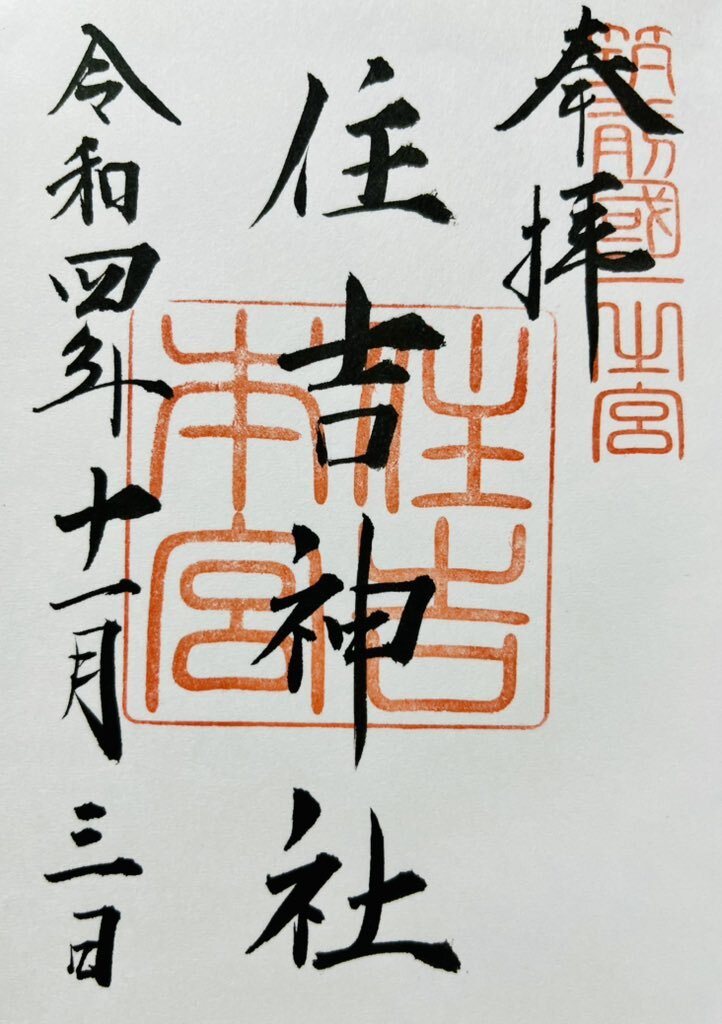 奉拝
筑前國一之宮
住吉神社
住吉本宮
令和四年十一月三日